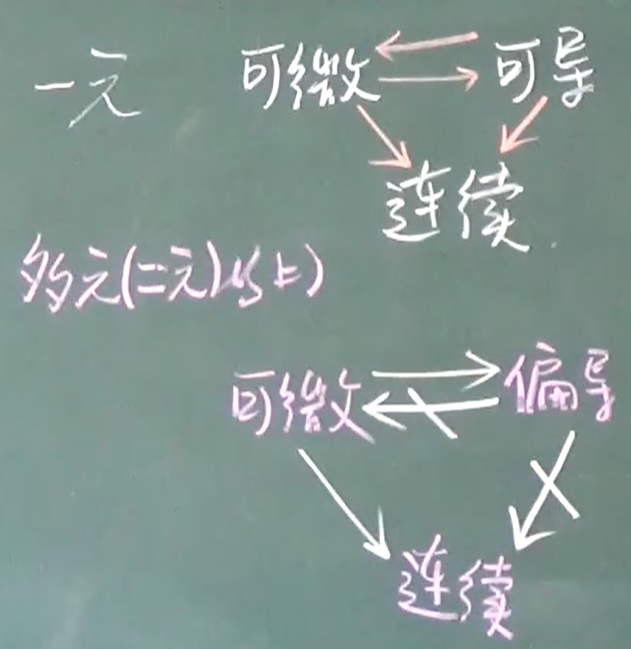 一元 可微 可导
连续
多元(二元)以上)
可微 偏导
连续